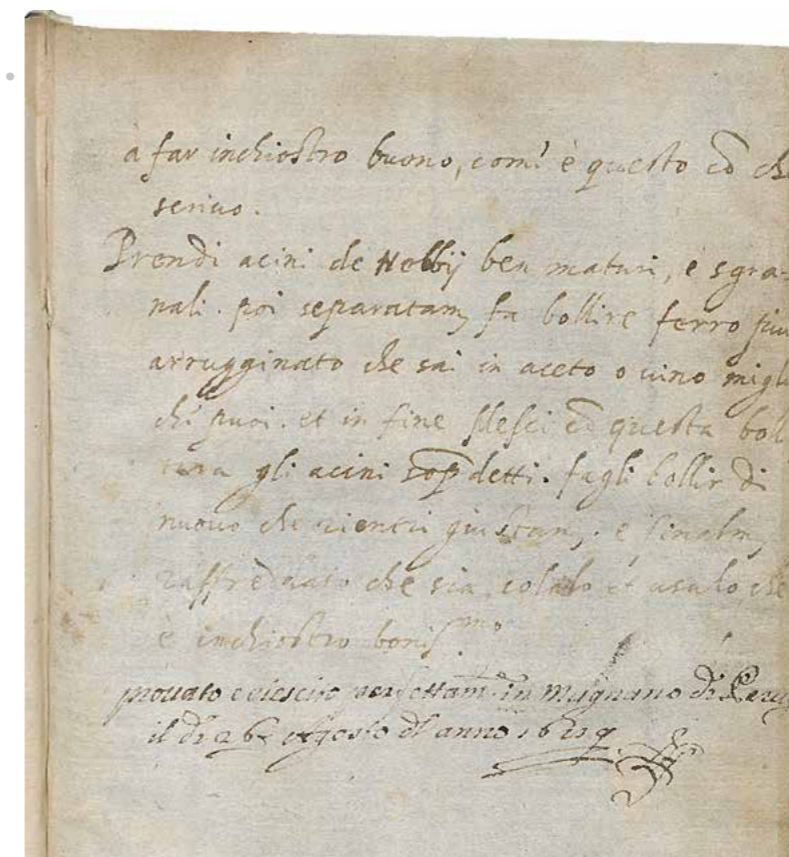 a far inchiostro buono, com' è questo cō ch
scriuo.
Prendi acini de Nebbij ben maturi, e sgra-
nali. poi separatam, fa bollire ferro piu
arrugginato che sai in aceto o uino migl
ch' puoi. et in fine mesci cō questa bol
tura gli acini sop detti. fagli bollir di
nuouo che giustam, e finalm,
raffreddato che sia, colalo et usalo, che
è inchiostro bonis.mo
prouato e riescito perfettam. in Mugnano di Peru
il di 26 Agosto dl anno